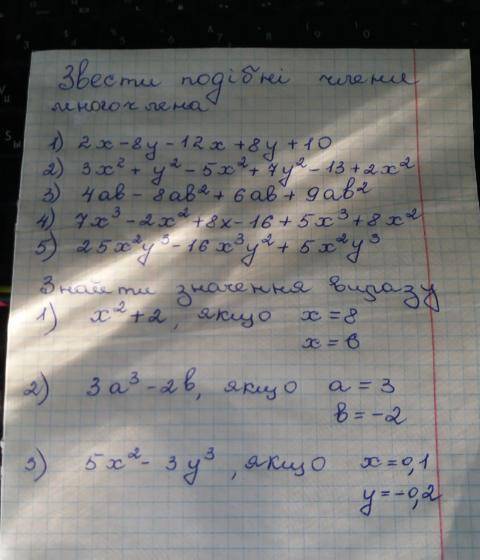 Звести подібні члени
многочлена
1) 2x - 8y - 12x + 8y + 10
2) 3x² + y² - 5x² + 7y² - 13 + 2x²
3) 4ab - 8ab² + 6ab + 9ab²
4) 7x³ - 2x² + 8x - 16 + 5x³ + 8x²
5) 25x²y³ - 16x³y² + 5x²y³
Знайти значення виразу
1) x² + 2, якщо x = 8
x = 6
2) 3a³ - 2b, якщо a = 3
b = -2
3) 5x² - 3y³, якщо x = 0,1
y = -0,2